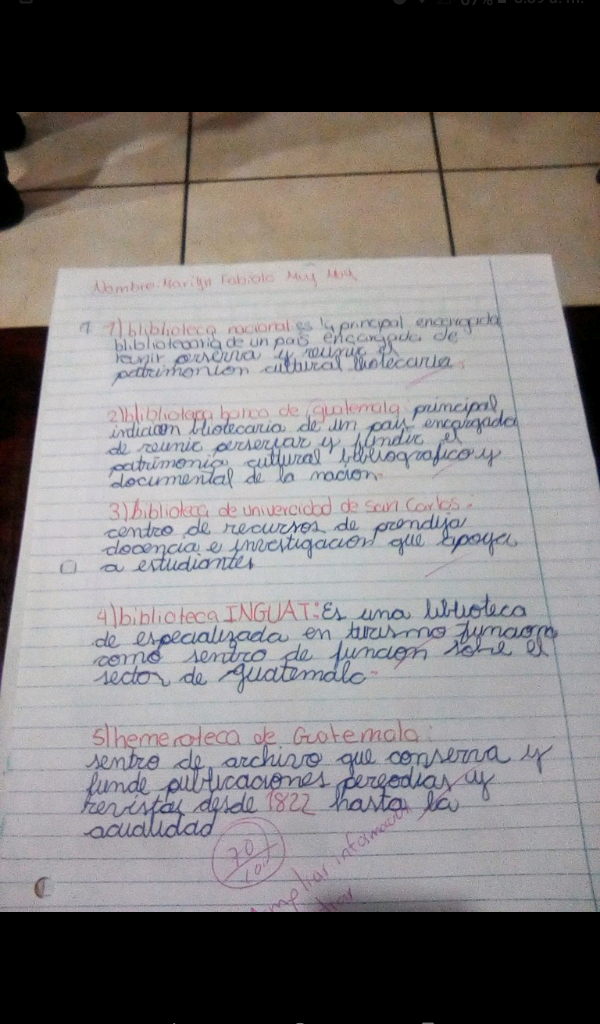 Nombre: Marilyn Fabiola Muy Muy
1) bliblioteca nacional es la principal encargada
bibliotecaria de un país encargada de
reunir perserva y reunic el
patrimonion cultural bliotecaria.
2) bliblioteca banco de guatemala principal
indicion bliotecaria de un país encargada
de reunic perserjar y fundir el
patrimonia cultural bibliografico y
documental de la nacion.
3) biblioteca de univercidad de san Carlos:
centro de recursos de prendija
docencia e investigacion que apoya
a estudiantes
4) biblioteca INGUAT: Es una biblioteca
de especializada en turismo funciona
como sentro de funcion sobre el
sector de guatemala-
5) hemeroteca de Guatemala:
sentro de archivo que conserva y
funde publicaciones pereodias y
revistas desde 1822 hasta la
acualidad
70
100
Ampliar información